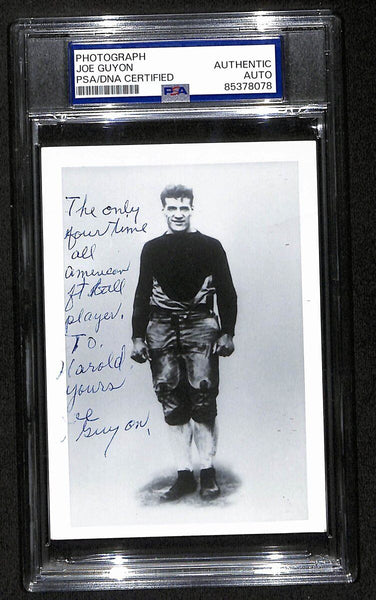 PHOTOGRAPH
JOE GUYON
PSA/DNA CERTIFIED
AUTHENTIC
AUTO
85378078
PSA
The only
four time
all
american
ft Ball
player.
To.
Harold.
yours
Guyon,